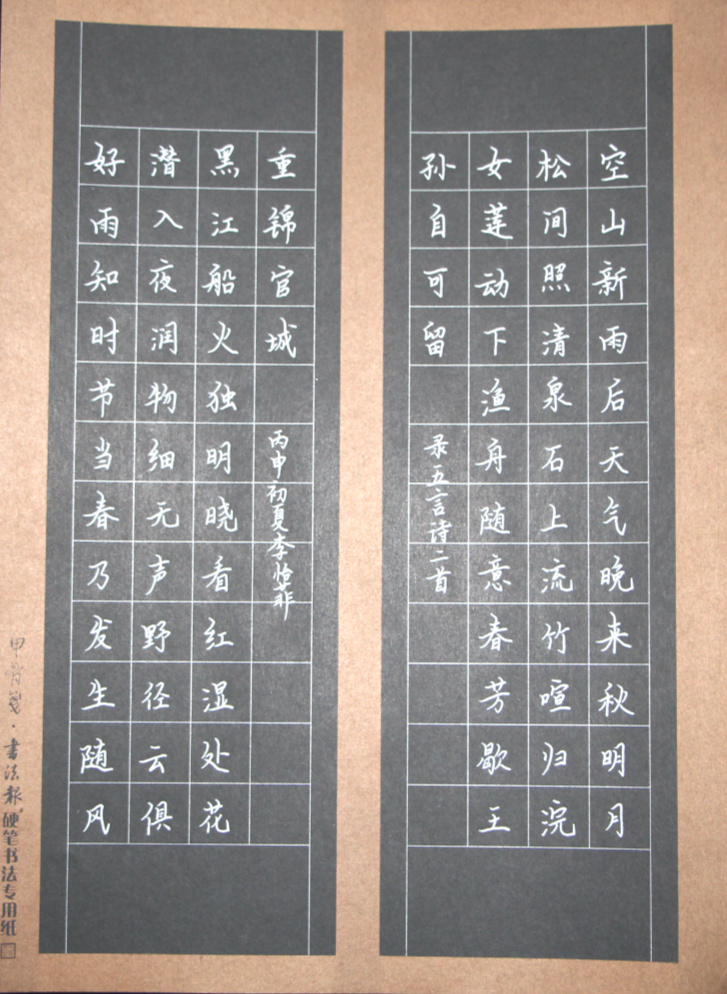 空山新雨后天气晚来秋明月
松间照清泉石上流竹喧归浣
女莲动下渔舟随意春芳歇王
孙自可留
录五言诗二首
好雨知时节当春乃发生随风
潜入夜润物细无声野径云俱
黑江船火独明晓看红湿处花
重锦官城
丙申初夏李怡菲
書法報硬笔书法专用纸